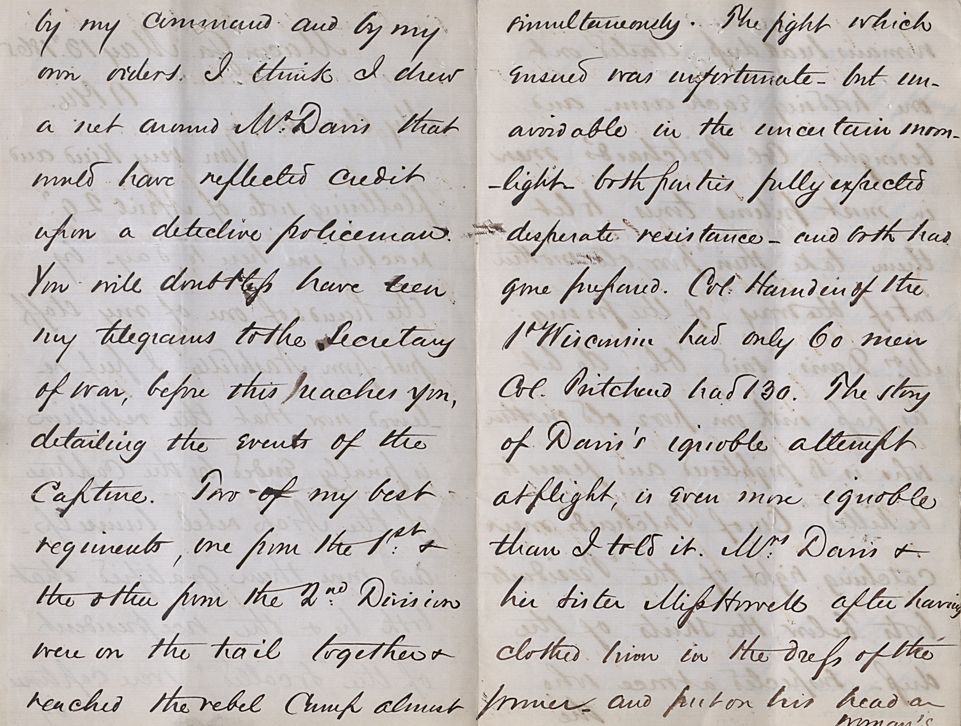 by my command and by my
own orders. I think I drew
a net around Mr. Davis that
would have reflected credit
upon a detective policeman.
You will doubtless have seen
my telegrams to the Secretary
of war, before this reaches you,
detailing the events of the
Capture. Two of my best
regiments, one from the 1st. &
the other from the 2nd Division
were on the trail together &
reached the rebel Camp almost
simultaneously. The fight which
ensued was unfortunate - but un-
avoidable in the uncertain moon-
-light - both parties fully expected
desperate resistance - and both had
gone prepared. Col. Harnden of the
1st Wisconsin had only 60 men
Col. Pritchard had 130. The story
of Davis's ignoble attempt
at flight, is even more ignoble
than I told it. Mrs Davis &
her sister Miss Howell after having
clothed him in the dress of the
former - and put on his head a
woman's